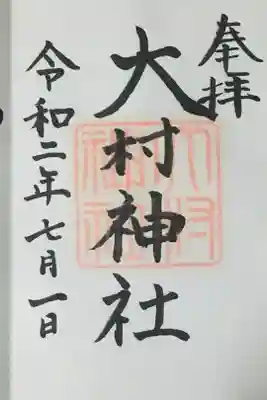 奉拝
大村神社
令和二年七月一日